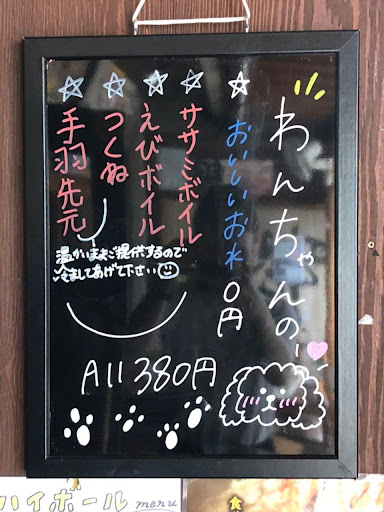 わんちゃんの
おいしいお水 0円
ササミボイル
えびボイル
つくね
手羽先元
温かいままご提供するので
冷ましてあげて下さい
All 380円
ハイボール menu